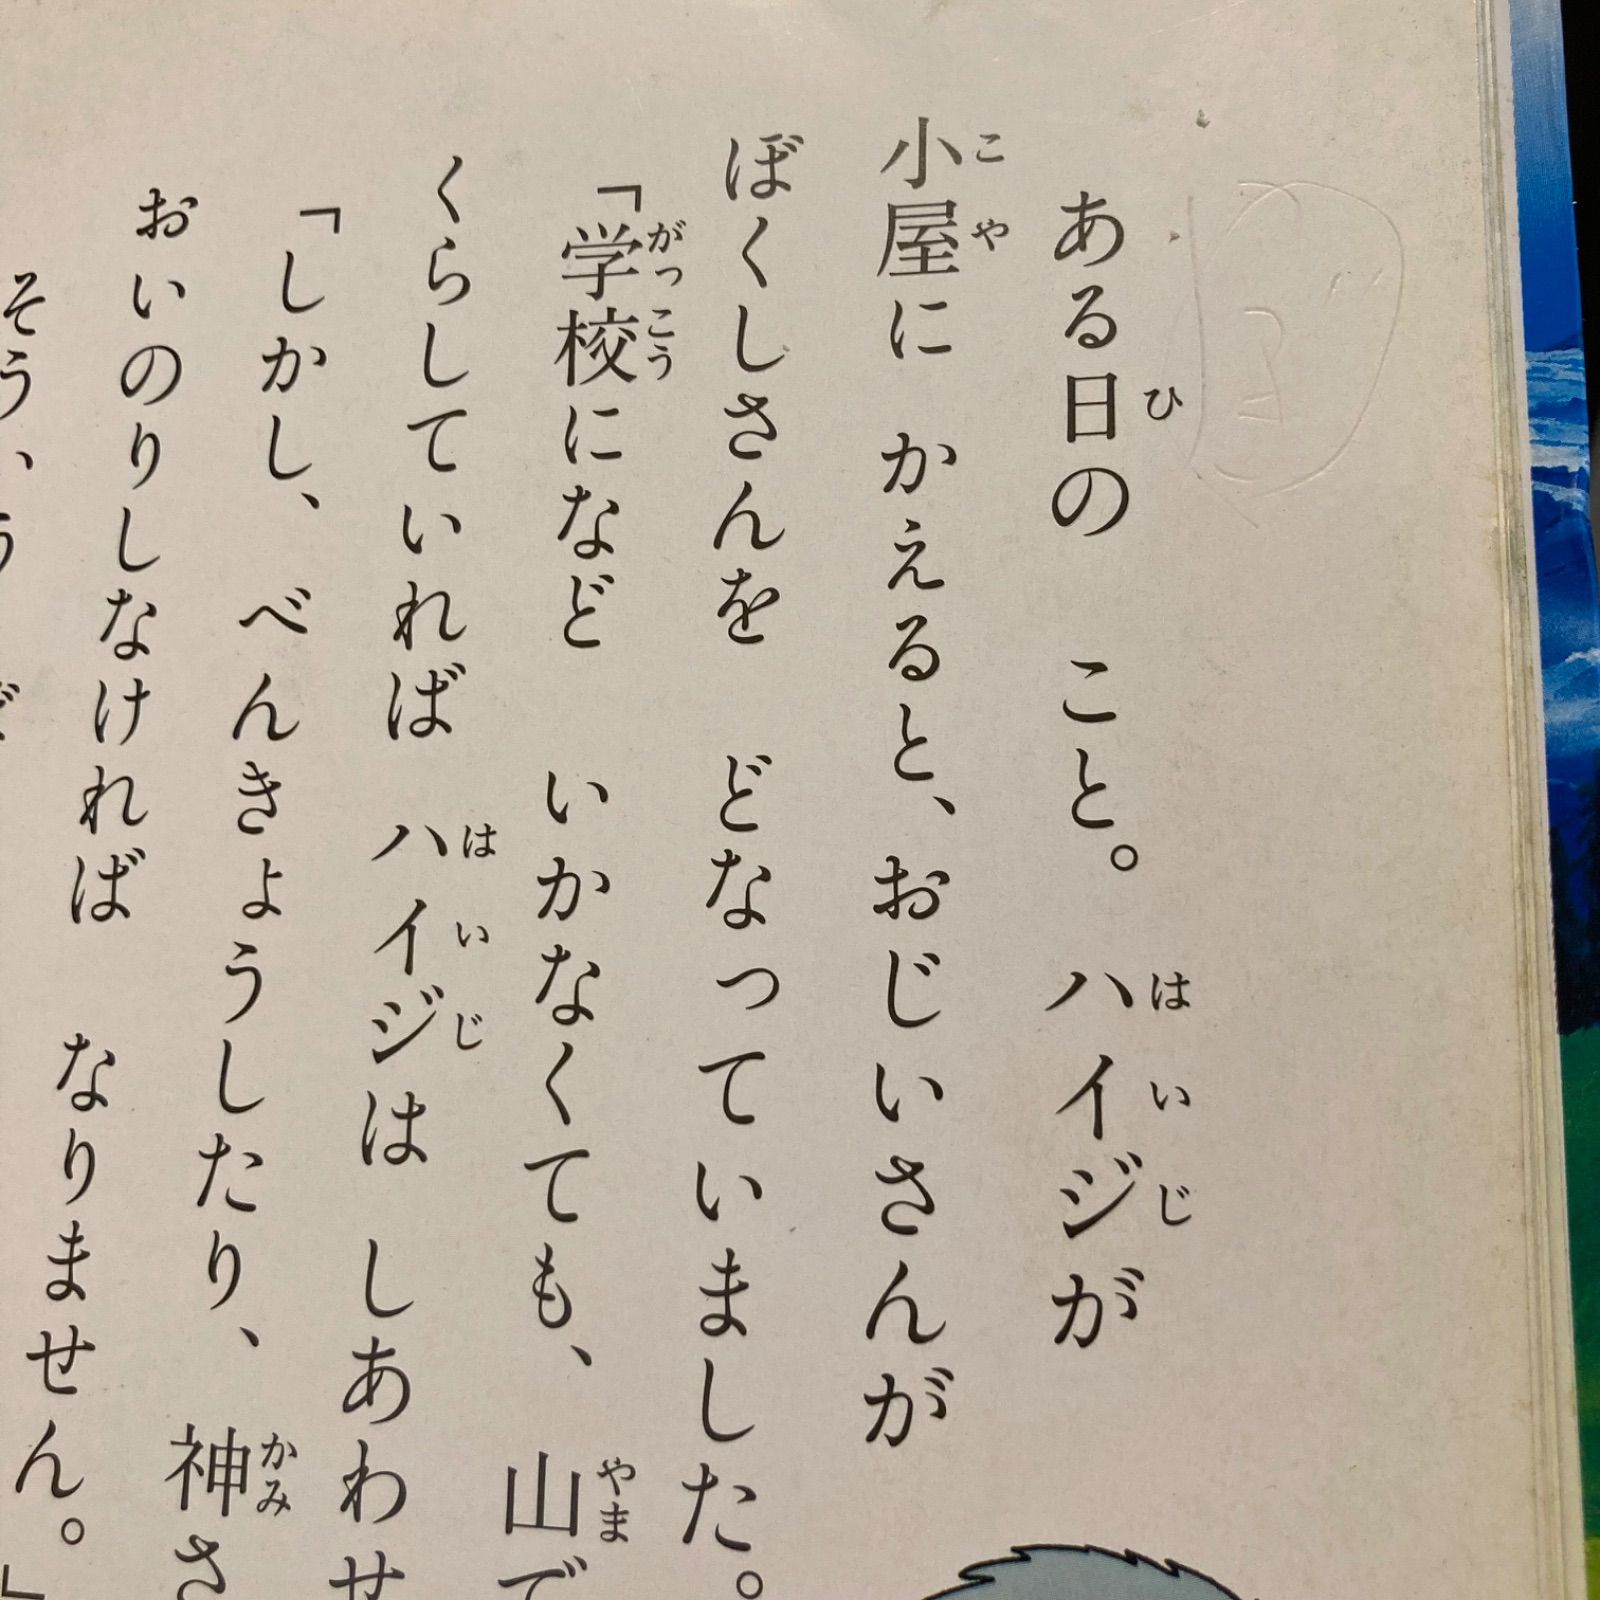 ある日の　こと。　ハイジが
小屋に　かえると、おじいさんが
ぼくしさんを　どなっていました。
「学校になど　いかなくても、　山で
くらしていれば　ハイジは　しあわせ
「しかし、　べんきょうしたり、　神さ
おいのりしなければ　なりません。」
そう、う